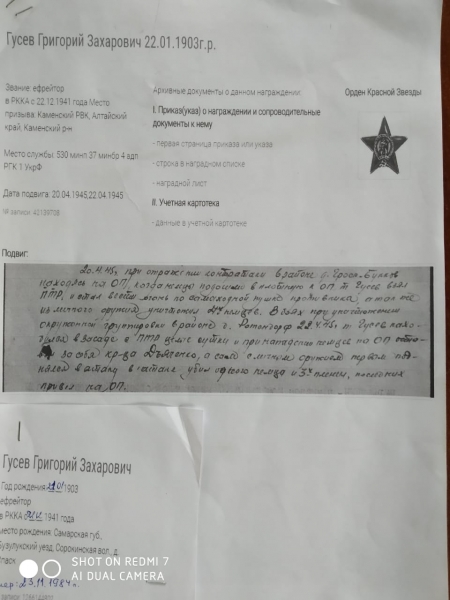 Гусев Григорий Захарович 22.01.1903г.р.
Звание: ефрейтор
в РККА с 22.12.1941 года Место
призыва: Каменский РВК, Алтайский
край, Каменский р-н
Место службы: 530 минп 37 минбр 4 адп
РГК 1 УкрФ
Дата подвига: 20.04.1945,22.04.1945
№ записи: 42139708
Архивные документы о данном награждении:
I. Приказ(указ) о награждении и сопроводительные
документы к нему
- первая страница приказа или указа
- строка в наградном списке
- наградной лист
II. Учетная картотека
- данные в учетной картотеке
Орден Красной Звезды
Подвиг:
20.4.45г. при отражении контратаки в районе
находясь на ОП, когда немцы подошли вплотную к ОП т. Гусев взял
ПТР, и стал вести огонь по самоходной пушке противника, а так же
из личного оружия уничтожил немцев. В боях при уничтожении
окруженной группировки в районе г. 22.4.45г. т. Гусев нахо-
дился в засаде с ПТР и при нападении немцев на ОП
за себя кр-ца а сам с личным оружием первым
в атаку, убил одного немца и 3х пленил, которых
привел на ОП.
Гусев Григорий Захарович
Год рождения 1903
ефрейтор
в РККА 1941 года
место рождения: Самарская губ,
Бузулукский уезд, Сорокинская вол., д
Спасск
23.11.1984г.
SHOT ON REDMI 7
AI DUAL CAMERA